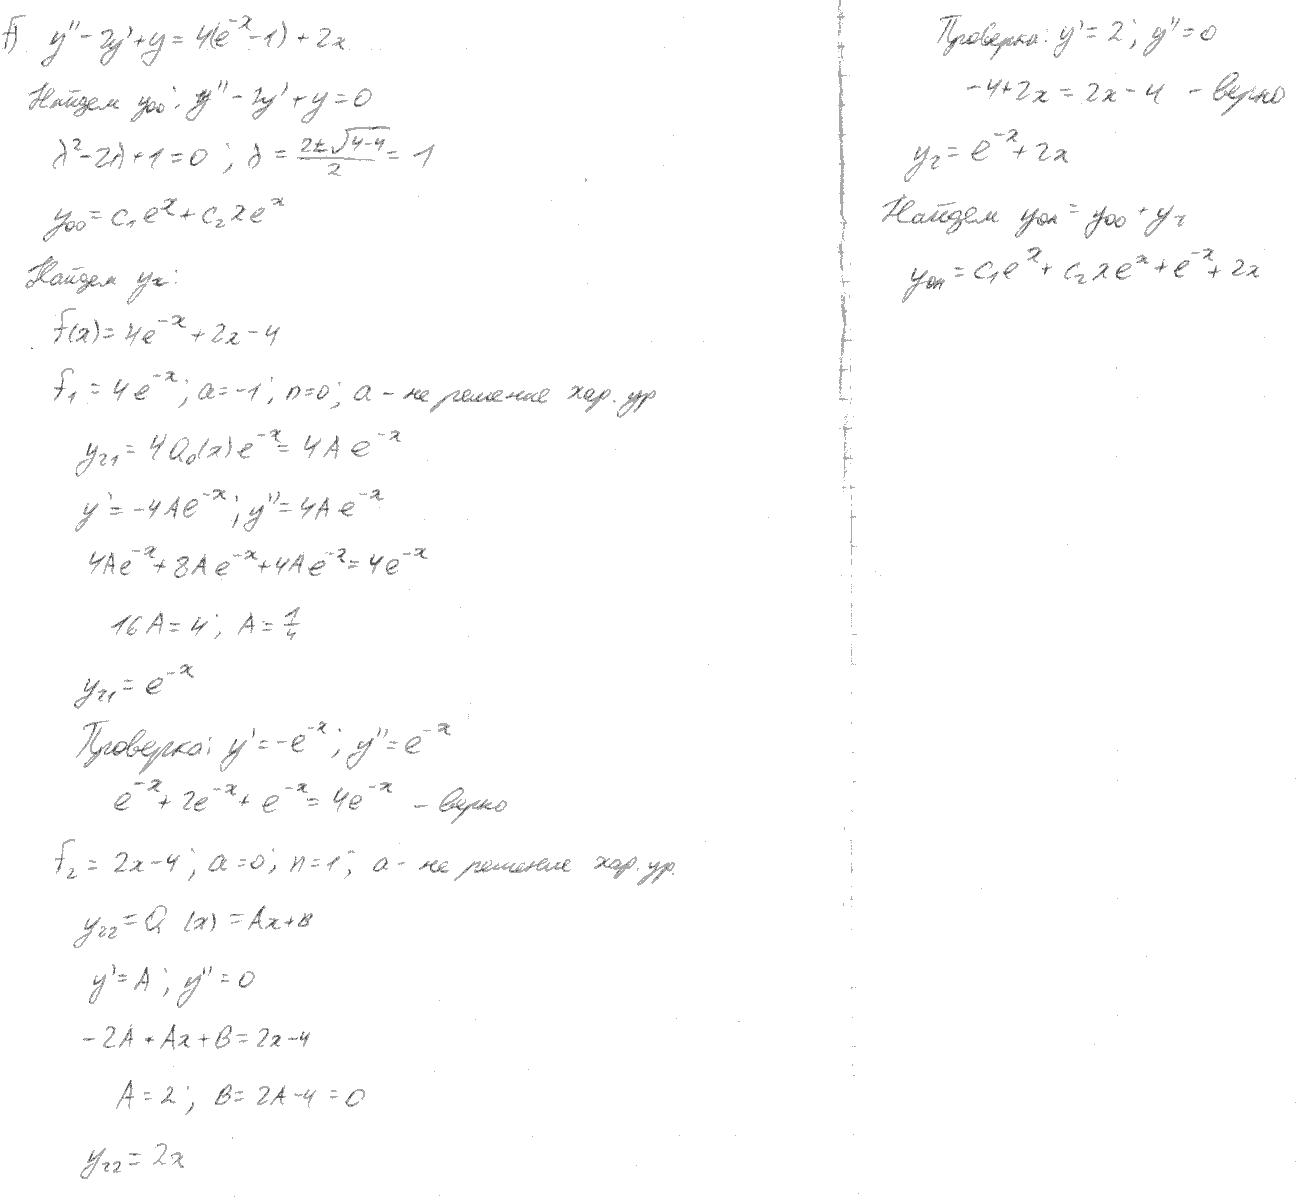 f) y'' - 2y' + y = 4(e^{-x} - 1) + 2x
Найдем y₀₀: y'' - 2y' + y = 0
λ² - 2λ + 1 = 0 ; λ = (2 ± √(4-4))/2 = 1
y₀₀ = C₁e^x + C₂xe^x
Найдем yч:
f(x) = 4e^{-x} + 2x - 4
f₁ = 4e^{-x} ; a = -1 ; n = 0 ; a - не решение хар. ур
yч₁ = 4Q₀(x)e^{-x} = 4Ae^{-x}
y' = -4Ae^{-x} ; y'' = 4Ae^{-x}
4Ae^{-x} + 8Ae^{-x} + 4Ae^{-x} = 4e^{-x}
16A = 4 ; A = 1/4
yч₁ = e^{-x}
Проверка: y' = -e^{-x} ; y'' = e^{-x}
e^{-x} + 2e^{-x} + e^{-x} = 4e^{-x} - верно
f₂ = 2x - 4 ; a = 0 ; n = 1 ; a - не решение хар. ур.
yч₂ = Q₁(x) = Ax + B
y' = A ; y'' = 0
-2A + Ax + B = 2x - 4
A = 2 ; B = 2A - 4 = 0
yч₂ = 2x
Проверка: y' = 2 ; y'' = 0
-4 + 2x = 2x - 4 - верно
yч = e^{-x} + 2x
Найдем yон = y₀₀ + yч
yон = C₁e^x + C₂xe^x + e^{-x} + 2x